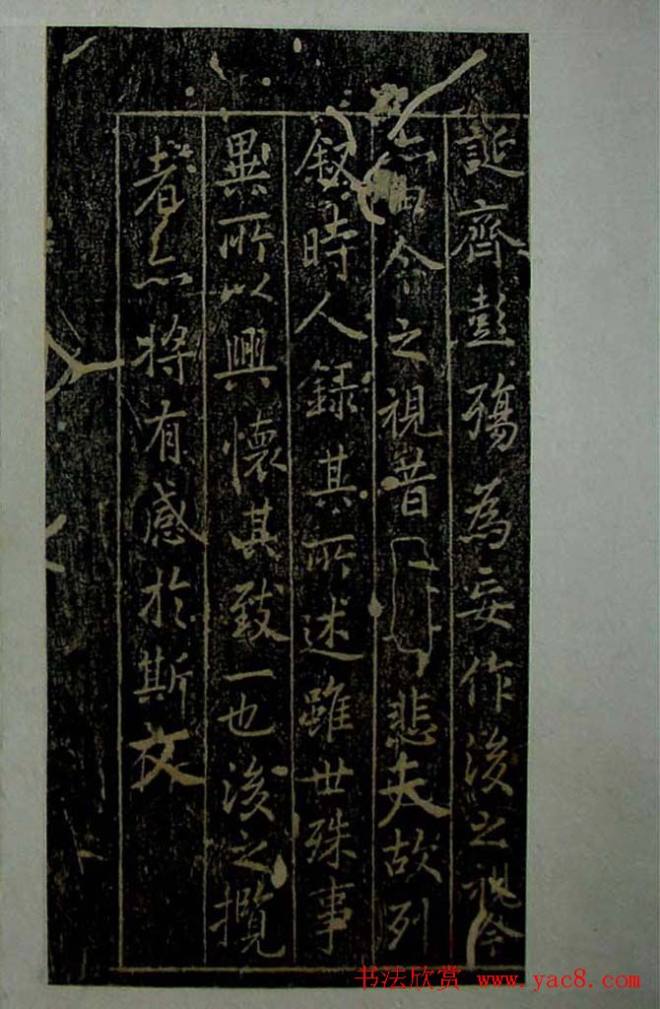 誕齊彭殤為妄作後之視今
亦由今之視昔悲夫故列
叙時人録其所述雖世殊事
異所以興懷其致一也後之攬
者亦將有感於斯文
书法欣赏 www.yac8.com